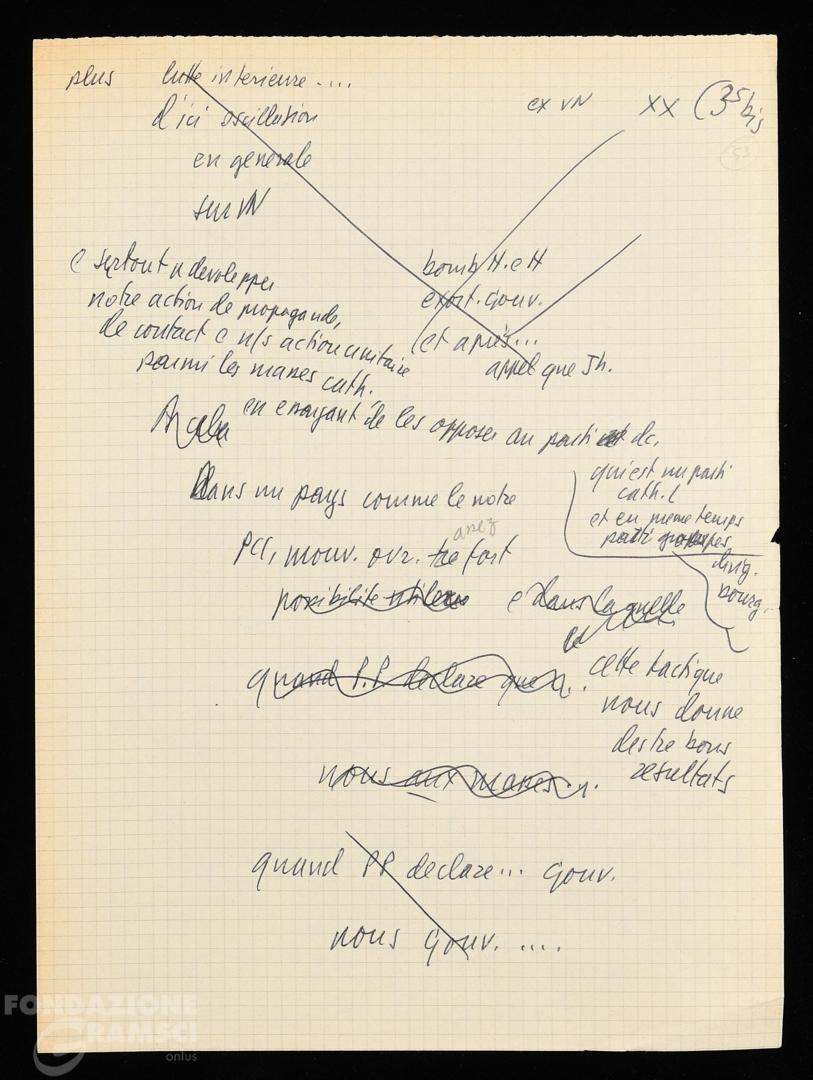 plus lutte interieure....
d'ici oscillation
en generale
sur VN
ex VN XX (35 bis
53
bomb H. e H
exort. gouv.
et après...
appel que Jh.
e surtout n developper
notre action de propagande,
de contact e n/s action unitaire
parmi les masses cath.
en essayant de les opposer au parti dc,
qui est un parti
cath. (
et en meme temps
parti
dirig.
bourg.
Dans un pays comme le notre
assez
PCI, mouv. ovr. tre fort
possibilite e dans laquelle
cette tactique
nous donne
des tre bons
resultats
quand P.P. declare que
nous aux masses ..
quand PP declare... gouv.
nous gouv. ....
FONDAZIONE
GRAMSCI
onlus